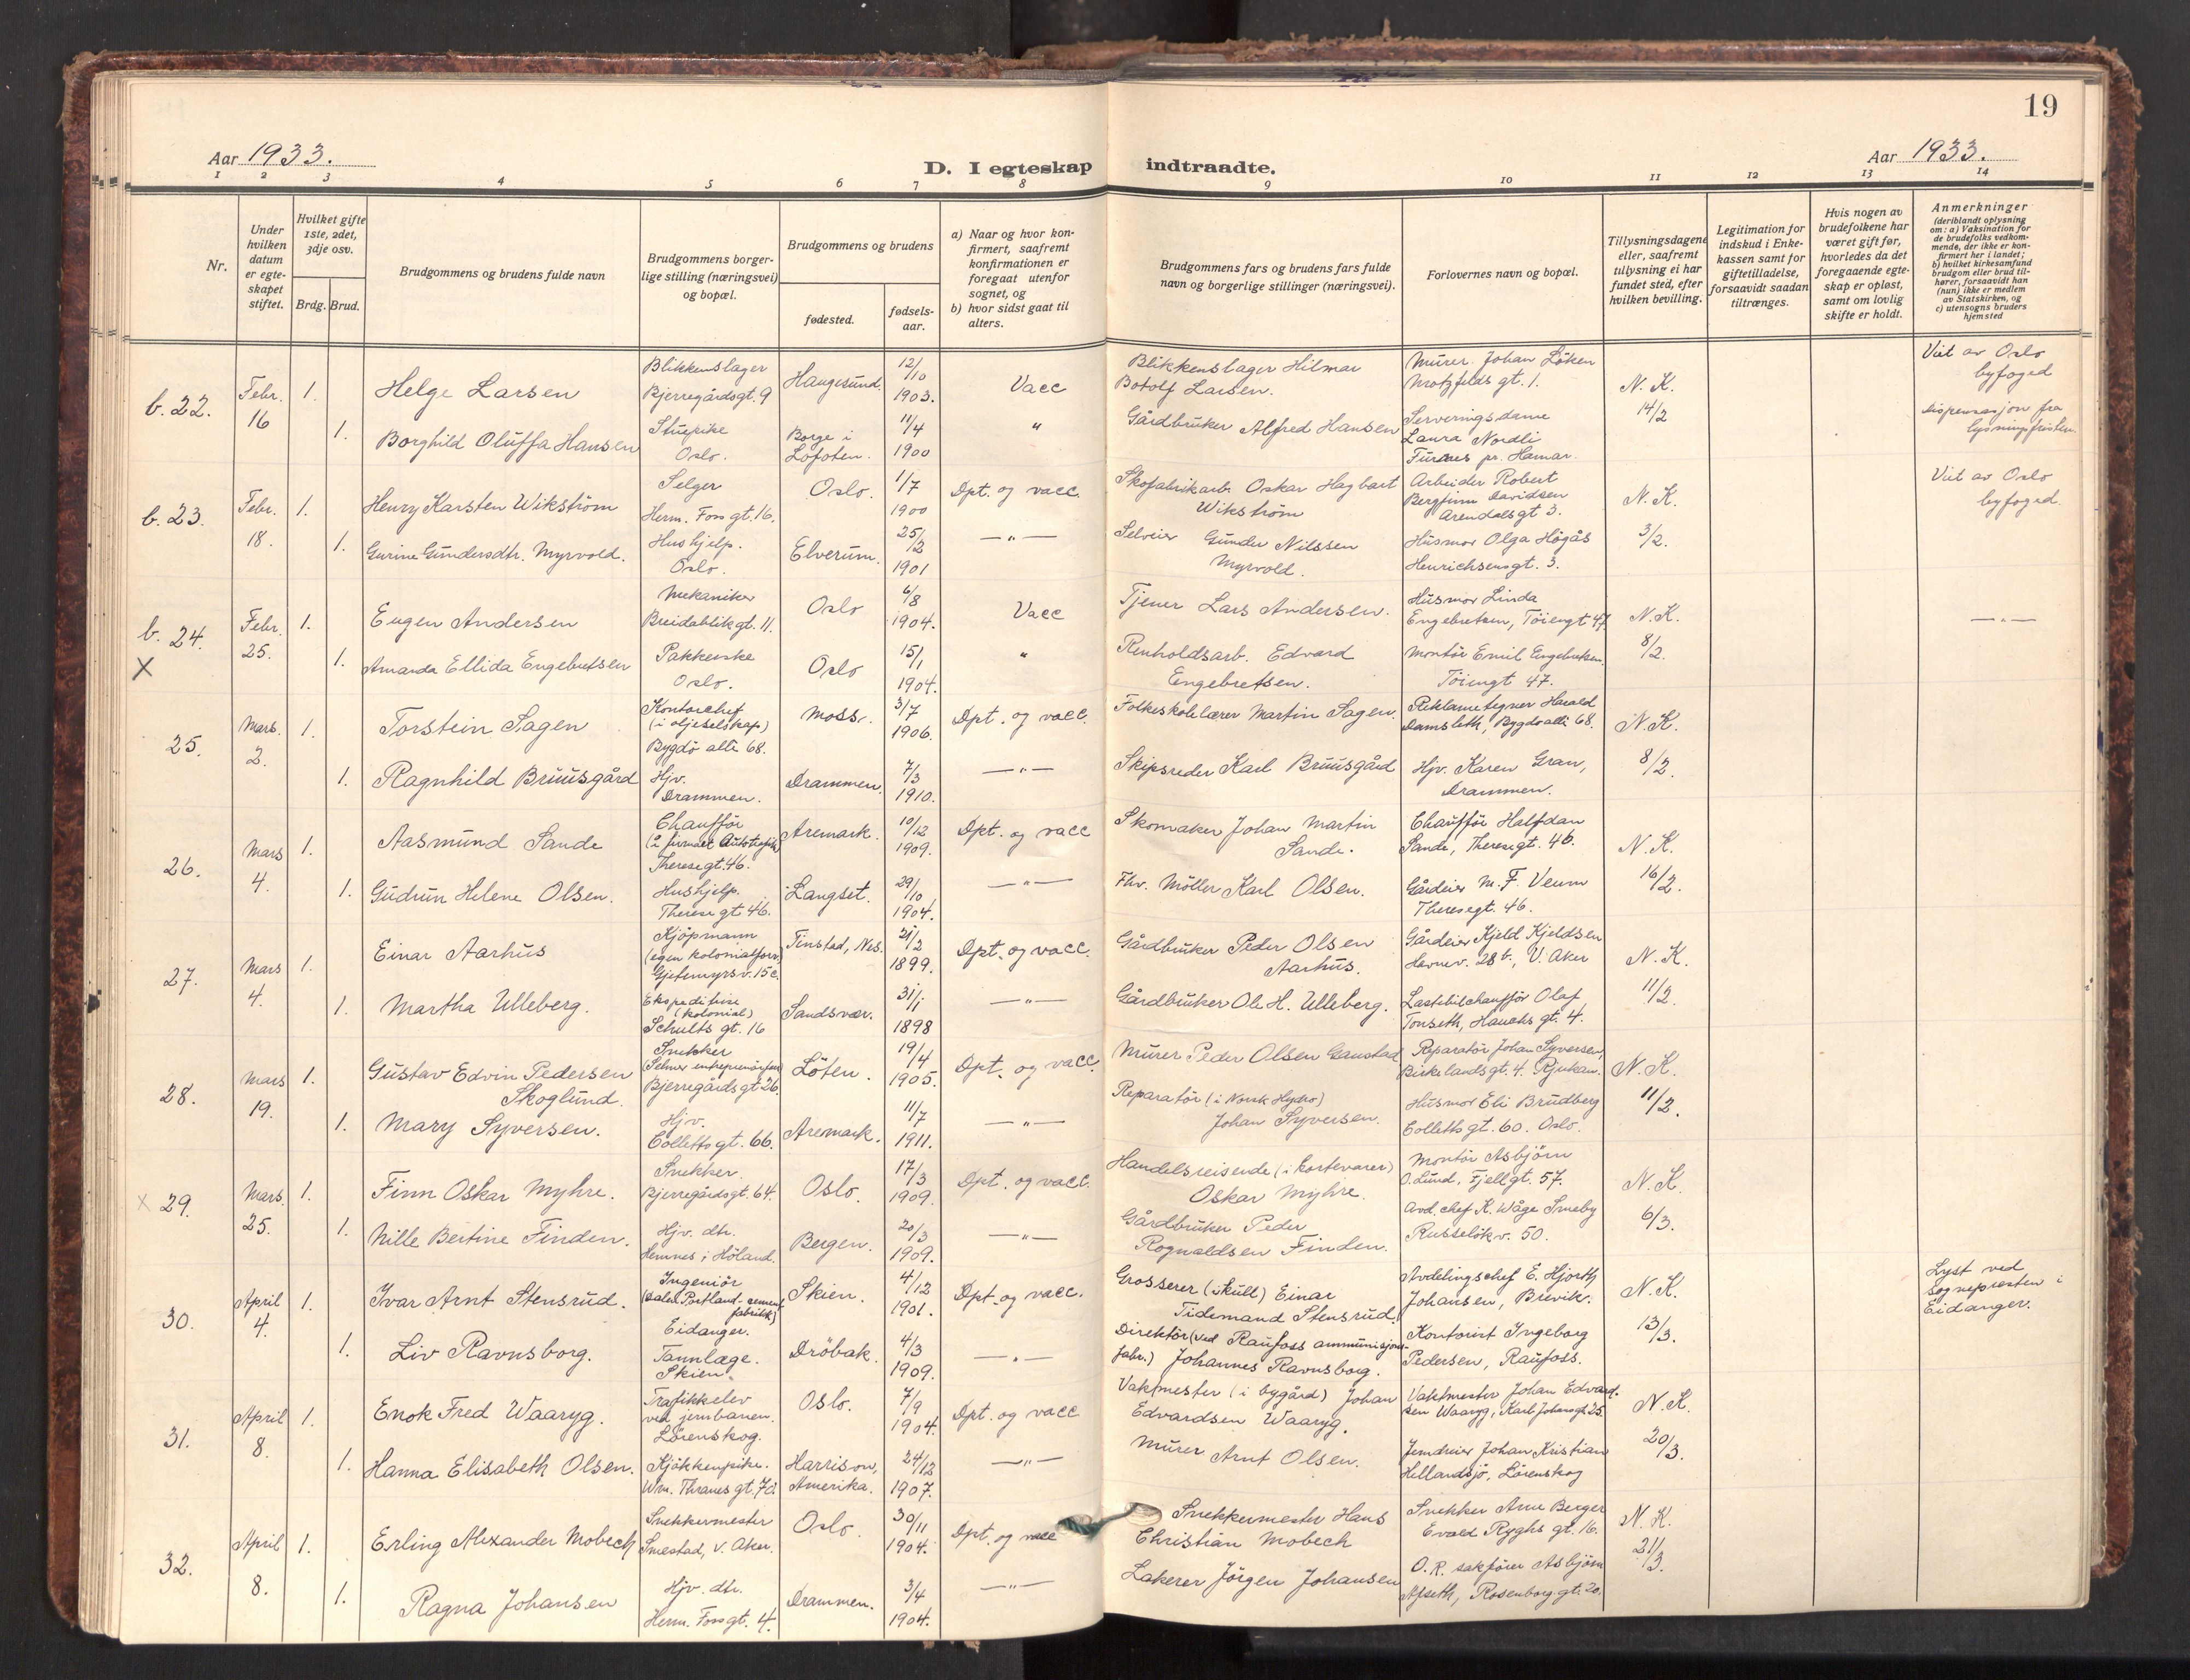 19
Aar 1933.
D. I egteskap indtraadte.
Aar 1933.
1 2 3 4 5 6 7 8 9 10 11 12 13 14
Nr.
Under hvilken datum er egteskapet stiftet.
Hvilket gifte 1ste, 2det, 3dje osv.
Brdg. Brud.
Brudgommens og brudens fulde navn
Brudgommens borgerlige stilling (næringsvei) og bopæl.
Brudgommens og brudens
fødested.
fødselsaar.
a) Naar og hvor konfirmert, saafremt konfirmationen er foregaat utenfor sognet, og
b) hvor sidst gaat til alters.
Brudgommens fars og brudens fars fulde navn og borgerlige stillinger (næringsvei).
Forlovernes navn og bopæl.
Tillysningsdagene eller, saafremt tillysning ei har fundet sted, efter hvilken bevilling.
Legitimation for indskud i Enkekassen samt for giftetilladelse, forsaavidt saadan tiltrænges.
Hvis nogen av brudefolkene har været gift før, hvorledes da det foregaaende egteskap er opløst, samt om lovlig skifte er holdt.
Anmerkninger
(deriblandt oplysning om: a) Vaksination for de brudefolks vedkommende, der ikke er konfirmert her i landet; b) hvilket kirkesamfund brudgom eller brud tilhører, forsaavidt han (hun) ikke er medlem av Statskirken, og c) utensogns bruders hjemsted
b. 22. Febr. 16 1. Helge Larsen Blikkenslager Bjerregårdsgt. 9 Haugesund. 12/10 1903. Vacc Blikkenslager Hilmar Botolf Larsen. Murer Johan Löken Motzfelds gt. 1. N. K. 14/2 Viet av Oslo byfoged
1. Borghild Oluffa Hansen Stuepike Oslo. Borge i Lofoten. 11/4 1900 " Gårdbruker Alfred Hansen Serveringsdame Laura Nordli Furnes pr. Hamar. Dispensasjon fra lysningsfristen
b. 23. Febr. 18. 1. Henry Karsten Wikström Selger Herm. Foss gt. 16. Oslo. 1/7 1900 Dpt. og vacc. Skofabrikarb. Oskar Hagbart Wikström Arbeider Robert Bergfinn Davidsen Arendalsgt 3. N. K. 3/2. Viet av Oslo byfoged.
1. Gurine Gundersdtr. Myrvold. Hushjelp. Oslo. Elverum. 25/2 1901 — " — Selveier Gunder Nilssen Myrvold. Husmor Olga Högås Henrichsensgt. 3.
b. 24. X Febr. 25. 1. Eugen Andersen Mekaniker Breidablikgt. 11. Oslo 6/8 1904. Vacc Tjener Lars Andersen. Husmor Linda Engebretsen, Töiengt 47 N. K. 8/2. — " —
1. Amanda Ellida Engebretsen Pakkerske Oslo. Oslo 15/1 1904. " Renholdsarb. Edvard Engebretsen. Montör Emil Engebretsen. Töiengt 47.
25. Mars. 2. 1. Torstein Sagen Kontorchef (i oljeselskap) Bygdö allé 68. Moss. 3/7 1906. Dpt. og vacc. Folkeskolelærer Martin Sagen. Reklametegner Harald Damsleth, Bygdö allé 68. N. K. 8/2.
1. Ragnhild Bruusgård Hjv. Drammen. Drammen. 7/3 1910. — " — Skipsreder Karl Bruusgård Hjv. Karen Gran, Drammen.
26. Mars 4. 1. Aasmund Sande Chaufför (i firmaet Autotrafik) Theresegt. 46. Aremark. 10/12 1909. Dpt. og vacc Skomaker Johan Martin Sande. Chauffør Halfdan Sande, Theresegt. 46. N. K. 16/2.
1. Gudrun Helene Olsen. Hushjelp. Therese gt 46. Langset. 29/10 1904. — " — Fhv. Möller Karl Olsen. Gårdeier M. F. Veum Theresegt. 46.
27. Mars 4. 1. Einar Aarhus Kjöpmann (egen kolonialforr.) Gjetemyrsv. 15 c. Tinstad, Nes. 21/2 1899. Dpt. og vacc. Gårdbruker Peder Olsen Aarhus. Gårdeier Kjeld Kjeldsen Havnev. 28 b., V. Aker N. K. 11/2.
1. Martha Ulleberg. Ekspeditrise (kolonial) Schults gt. 16 Sandsvær. 31/1 1898 — " — Gårdbruker Ole H. Ulleberg. Lastebilchauffør Olaf Tonseth, Hauchs gt. 4.
28. Mars 19. 1. Gustav Edvin Pedersen Skoglund. Snekker (Selmer entreprenörforr.) Bjerregårds gt 26. Löten. 19/4 1905. Dpt. og vacc. Murer Peder Olsen Gaustad Reparatör Johan Syversen, Birkelandsgt. 4. Rjukan. N. K. 11/2.
1. Mary Syversen. Hjv. Collettsgt. 66. Aremark. 11/7 1911. — " — Reparatör (i Norsk Hydro) Johan Syversen. Husmor Eli Brudberg Collettsgt. 60. Oslo.
X 29. Mars. 25. 1. Finn Oskar Myhre. Snekker. Bjerregårdsgt. 64. Oslo. 17/3 1909. Dpt. og vacc. Handelsreisende (i kortevarer) Oskar Myhre. Montör Asbjörn O. Lund, Fjellgt. 57. N. K. 6/3.
1. Nille Bertine Finden. Hjv. dtr. Hemnes i Höland. Bergen. 20/3 1909. — " — Gårdbruker Peder Rognaldsen Finden. Avd. chef K. Wåge Smeby Russelökv. 50.
30. April 4. 1. Ivar Arnt Stensrud. Ingeniör (Dalen Portland-cementfabrikk) Eidanger. Skien. 4/12 1901. Dpt. og vacc. Grosserer (i kull) Einar Tidemand Stensrud. Avdelingschef E. Hjorth Johansen, Brevik. N. K. 13/3. Lyst ved sognepresten i Eidanger.
1. Liv Ravnsborg. Tannlæge. Skien. Dröbak. 4/3 1909. — " — Direktör (ved Raufoss ammunisjonsfabr.) Johannes Ravnsborg. Kontorist Ingeborg Pedersen, Raufoss.
31. April 8. 1. Enok Fred Waaryg. Trafikkelev ved jernbanen. Lörenskog. Oslo. 7/9 1904. Dpt. og vacc Vaktmester (i bygård) Johan Edvardsen Waaryg. Vaktmester Johan Edvardsen Waaryg, Karl Johansgt 25. N. K. 20/3.
1. Hanna Elisabeth Olsen. Kjökkenpike. Wm. Thranes gt. 70. Harrison, Amerika. 24/12 1907. — " — Murer Arnt Olsen. Jerndreier Johan Kristian Hellandsjö, Lörenskog
32. April 8. 1. Erling Alexander Mobech Snekkermester Smestad, V. Aker. Oslo. 30/11 1904. Dpt. og vacc Snekkermester Hans Christian Mobech Snekker Arne Berger Evald Ryghs gt. 16. N. K. 21/3.
1. Ragna Johansen Hjv. dtr. Herm. Foss gt. 4. Drammen. 3/4 1904. — " — Lakerer Jörgen Johansen O. R. sakförer Asbjörn Apseth, Rosenborg gt. 20.